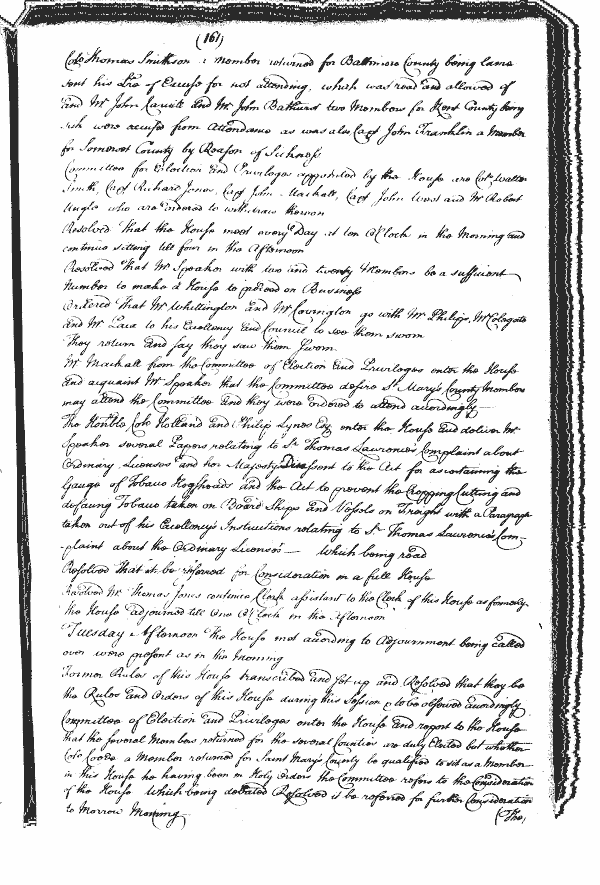 (161)
Colo Thomas Smithson a member returned for Baltimore County being lame
sent his Lre of Excuse for not attending, which was read and allowed of
and Mr John Carvile and Mr John Bathurst two Members for Kent County being
sick were excused from attendance as was also Capt John Franklin a Member
for Somerset County by Reason of Sickness
Committee for Election and Priviledges appointed by the House are Colo Walter
Smith, Capt Richard Jones, Capt John Mackall, Capt John West and Mr Robert
who are ordered to withdraw thereon
Resolved that the House meet every Day at ten O'Clock in the Morning and
continue sitting till four in the Afternoon
Resolved that Mr Speaker with two and twenty Members be a sufficient
Number to make a House to proceed on Business
Ordered that Mr Whittington and Mr Covington go with Mr Philips, Mr Colegate
and Mr to his Excellency and Council to see them sworn
They return and say they saw them Sworn
Mr Mackall from the Committee of Election and Priviledges enter the House
and acquaint Mr Speaker that the Committee desire St Mary's County Members
may attend the Committee and they were ordered to attend accordingly
The Honble Colo Holland and Philip Lynes Esq enter the House and deliver Mr
Speaker several Papers relating to Sr Thomas Lawrence's Complaint about
Ordinary Licenses and her Majestys Dissent to the Act for ascertaining the
Gauge of Tobacco Hogsheads and the Act to prevent the Cropping Cutting and
defacing Tobacco taken on Board Ships and Vessels on Freight with a Paragraph
taken out of his Excellency's Instructions relating to Sr Thomas Lawrence's Com-
-plaint about the Ordinary Licenses — Which being read
Resolved that it be referred for Consideration in a full House
Resolved Mr Thomas Jones continue Clerk assistant to the Clerk of this House as formerly
The House adjourned till One O'Clock in the Afternoon
Tuesday Afternoon The House met according to Adjournment being called
over were present as in the Morning
Former Rules of this House transcribed and set up and Resolved that they be
the Rules and Orders of this House during this Session & to be observed accordingly
Committee of Election and Priviledges enter the House and report to the House
that the several Members returned for the several Counties are duly Elected but whether
Colo Coode a Member returned for Saint Mary's County be qualified to sit as a Member
in this House he having been in Holy Orders the Committee refers to the Consideration
of the House Which being debated Resolved it be referred for further Consideration
to Morrow Morning
(The,